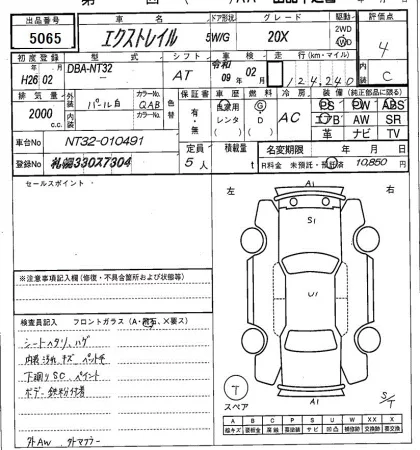 出品番号 車名 ドア形状 グレード 駆動 評価点
5065 エクストレイル 5W/G 20X 2WD 4WD 4
初度登録 型式 シフト 車検 走行(km・マイル) 内装
H26年02月 DBA-NT32 AT 令和09年02月 124,240 C
排気量 外装 パール白 カラーNo. QAB 色替 保証書 車歴 燃料 冷房 装備(純正部品に限る)
2000 c.c. 内装 カラーNo. 有・無 自家用 レンタ G D AC PS PW ABS
エアB AW SR
革 ナビ TV
車台No NT32-010491 定員 積載量 名変期限 年 月 日
登録No 札幌330ス7304 5人 t R料金 未預託・預託済 10,850円
セールスポイント
左 右
A1
S1
U1
A1
※注意事項記入欄(修復・不具合箇所および状態等)
検査員記入 フロントガラス(A・飛石、X要ス)
シートヘタリ、ハゲ
内装汚れ キズ ペット手
下廻りSC ペイント
ボデー鉄粉付着
外AW 外マフラー
T
スペア
S/T
A B C P S U W X XX
線キズ 腐蝕 要塗装 サビ 凹凸 補修跡 要交換 交換済